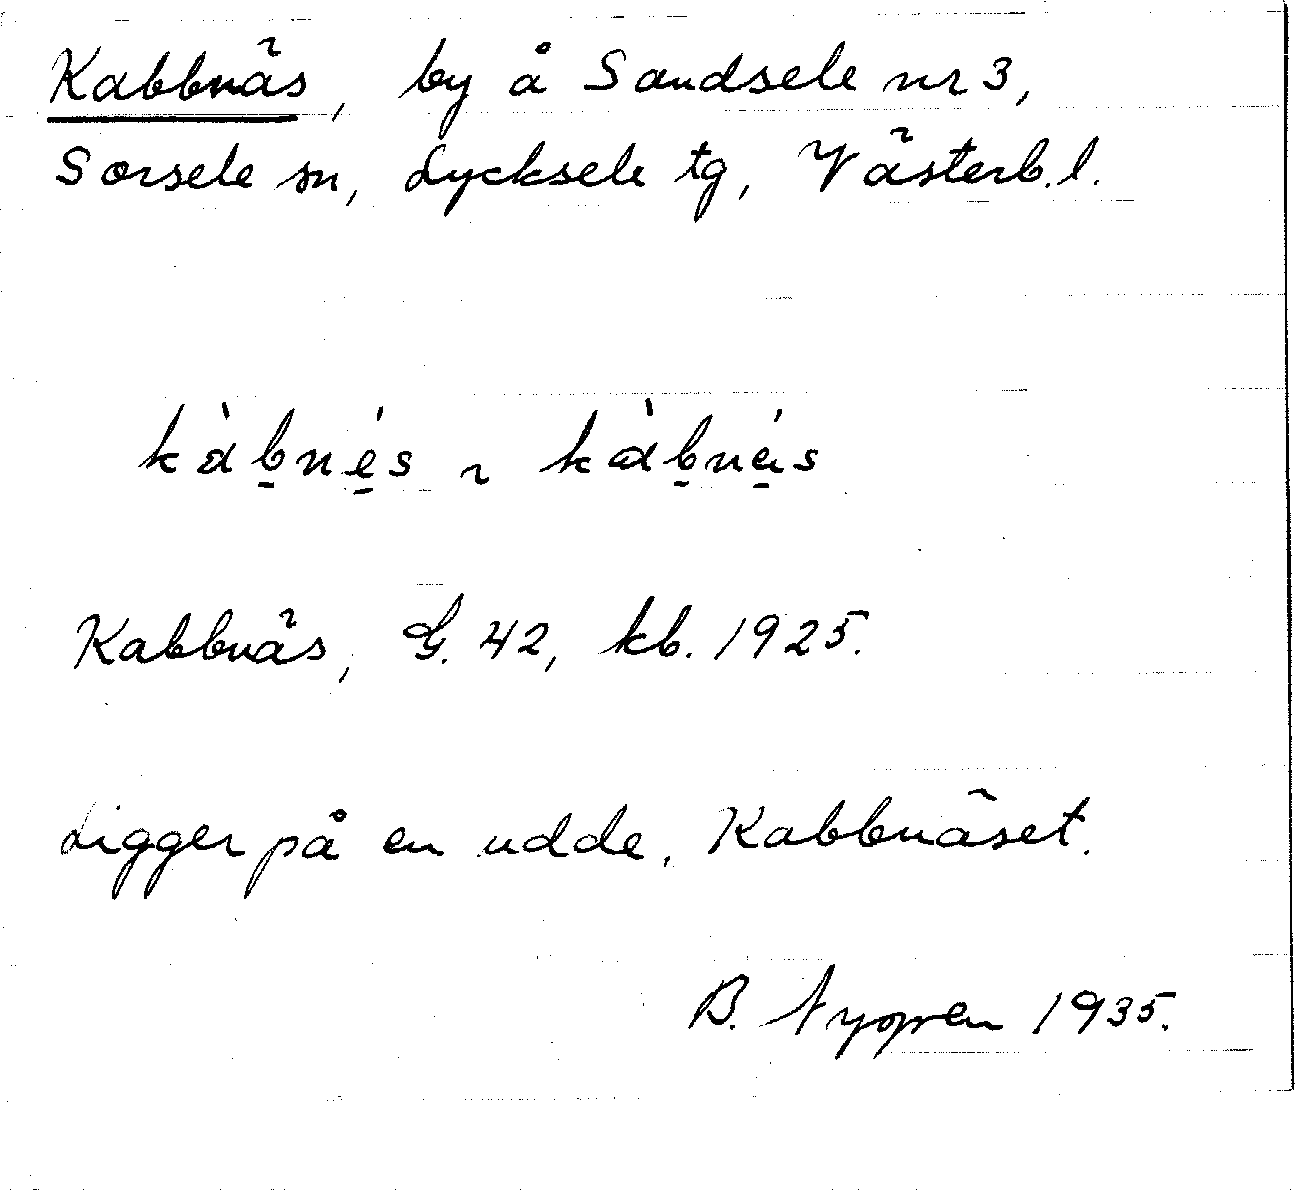 Kabbnäs, by å Sandsele nr 3,
Sorsele sn, Lycksele tg, Västerb. l.
kàb̠né̠s ~ kàb̠nä̠́s
Kabbnäs, G. 42, kb. 1925.
Ligger på en udde, Kabbnäset.
B. 1935.